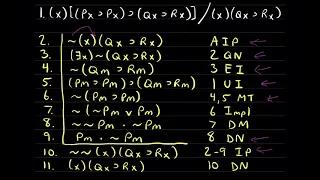 1. (x)[(Px ⊃ Px) ⊃ (Qx ⊃ Rx)] / (x)(Qx ⊃ Rx)
2. ~(x)(Qx ⊃ Rx) AIP
3. (∃x)~(Qx ⊃ Rx) 2 QN
4. ~(Qm ⊃ Rm) 3 EI
5. (Pm ⊃ Pm) ⊃ (Qm ⊃ Rm) 1 UI
6. ~(Pm ⊃ Pm) 4,5 MT
7. ~(~Pm ∨ Pm) 6 Impl
8. ~~Pm · ~Pm 7 DM
9. Pm · ~Pm 8 DN
10. ~~(x)(Qx ⊃ Rx) 2-9 IP
11. (x)(Qx ⊃ Rx) 10 DN